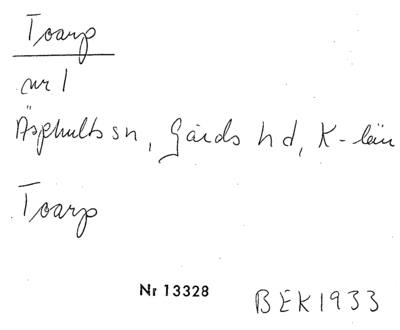 Toarp
nr 1
Äsphults sn, Gärds hd, K-län
Toarp
Nr 13328
BEK1933